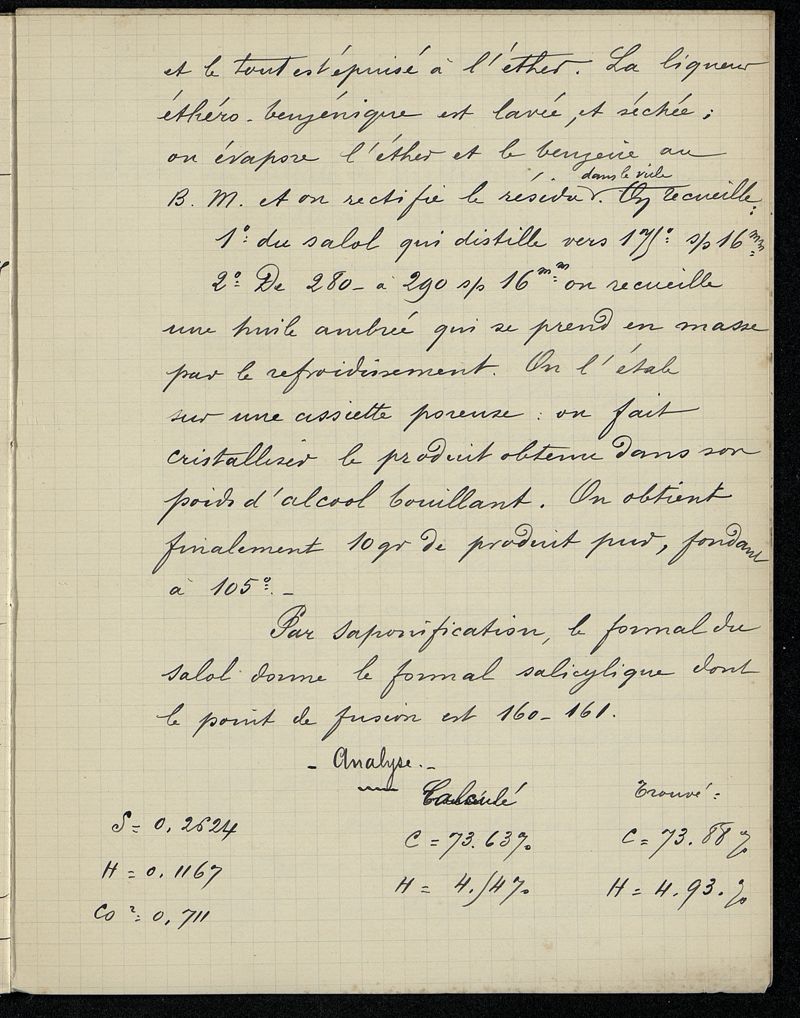 et le tout est épuisé à l'éther. La liqueur
éthéro-benzénique est lavée, et séchée;
on évapore l'éther et le benzène au
dans le vide
B. M. et on rectifie le résidu. On recueille:
1º du salol qui distille vers 175º sp 16mm
2º De 280 - à 290 sp 16mm on recueille
une huile ambrée qui se prend en masse
par le refroidissement. On l'étale
sur une assiette poreuse: on fait
cristalliser le produit obtenu dans son
poids d'alcool bouillant. On obtient
finalement 10gr de produit pur, fondant
à 105º. -
Par saponification, le formal du
salol donne le formal salicylique dont
le point de fusion est 160-161.
- Analyse. -
Calculé Trouvé:
S = 0,2624 C = 73.63% C = 73.88%
H = 0.1167 H = 4.54% H = 4.93.%
CO² = 0,711